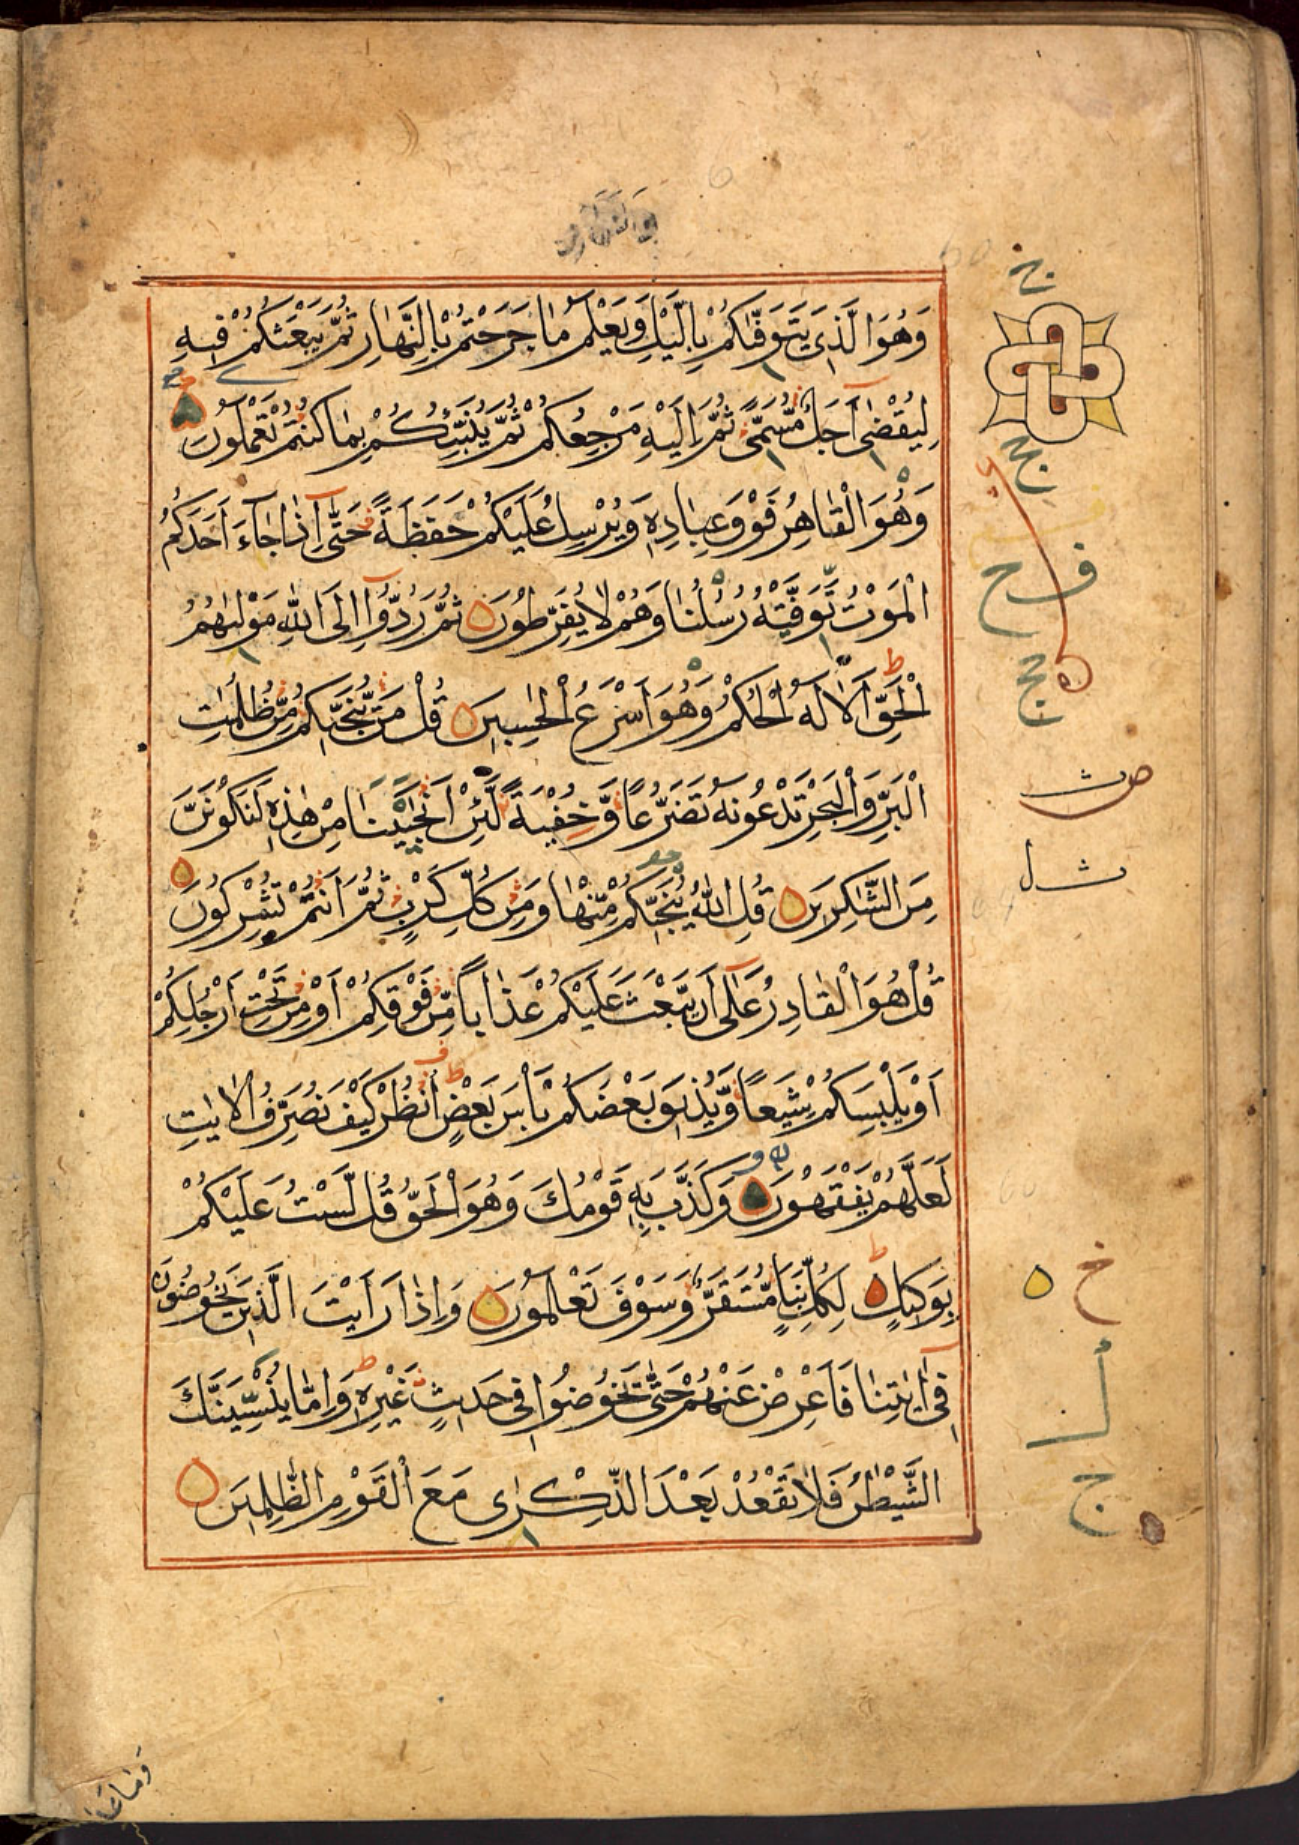 وَهُوَ الَّذِي يَتَوَفّٰىكُمْ بِالَّيْلِ وَيَعْلَمُ مَا جَرَحْتُمْ بِالنَّهَارِ ثُمَّ يَبْعَثُكُمْ فِيهِ
لِيُقْضٰى اَجَلٌ مُّسَمًّى ثُمَّ اِلَيْهِ مَرْجِعُكُمْ ثُمَّ يُنَبِّئُكُمْ بِمَا كُنْتُمْ تَعْمَلُونَ
وَهُوَ الْقَاهِرُ فَوْقَ عِبَادِهٖ وَيُرْسِلُ عَلَيْكُمْ حَفَظَةً حَتّٰى اِذَا جَآءَ اَحَدَكُمُ
الْمَوْتُ تَوَفَّتْهُ رُسُلُنَا وَهُمْ لَا يُفَرِّطُونَ ثُمَّ رُدُّوٓا اِلَى اللّٰهِ مَوْلٰىهُمُ
الْحَقِّ اَلَا لَهُ الْحُكْمُ وَهُوَ اَسْرَعُ الْحٰسِبِينَ قُلْ مَنْ يُّنَجِّيكُمْ مِّنْ ظُلُمٰتِ
الْبَرِّ وَالْبَحْرِ تَدْعُونَهٗ تَضَرُّعًا وَّخُفْيَةً لَّئِنْ اَنْجَيْتَنَا مِنْ هٰذِهٖ لَنَكُونَنَّ
مِنَ الشّٰكِرِينَ قُلِ اللّٰهُ يُنَجِّيكُمْ مِّنْهَا وَمِنْ كُلِّ كَرْبٍ ثُمَّ اَنْتُمْ تُشْرِكُونَ
قُلْ هُوَ الْقَادِرُ عَلٰٓى اَنْ يَّبْعَثَ عَلَيْكُمْ عَذَابًا مِّنْ فَوْقِكُمْ اَوْ مِنْ تَحْتِ اَرْجُلِكُمْ
اَوْ يَلْبِسَكُمْ شِيَعًا وَّيُذِيقَ بَعْضَكُمْ بَاْسَ بَعْضٍ اُنْظُرْ كَيْفَ نُصَرِّفُ الْاٰيٰتِ
لَعَلَّهُمْ يَفْقَهُونَ وَكَذَّبَ بِهٖ قَوْمُكَ وَهُوَ الْحَقُّ قُلْ لَّسْتُ عَلَيْكُمْ
بِوَكِيلٍ لِكُلِّ نَبَاٍ مُّسْتَقَرٌّ وَّسَوْفَ تَعْلَمُونَ وَاِذَا رَاَيْتَ الَّذِينَ يَخُوضُونَ
فِىٓ اٰيٰتِنَا فَاَعْرِضْ عَنْهُمْ حَتّٰى يَخُوضُوا فِى حَدِيثٍ غَيْرِهٖ وَاِمَّا يُنْسِيَنَّكَ
الشَّيْطٰنُ فَلَا تَقْعُدْ بَعْدَ الذِّكْرٰى مَعَ الْقَوْمِ الظّٰلِمِينَ